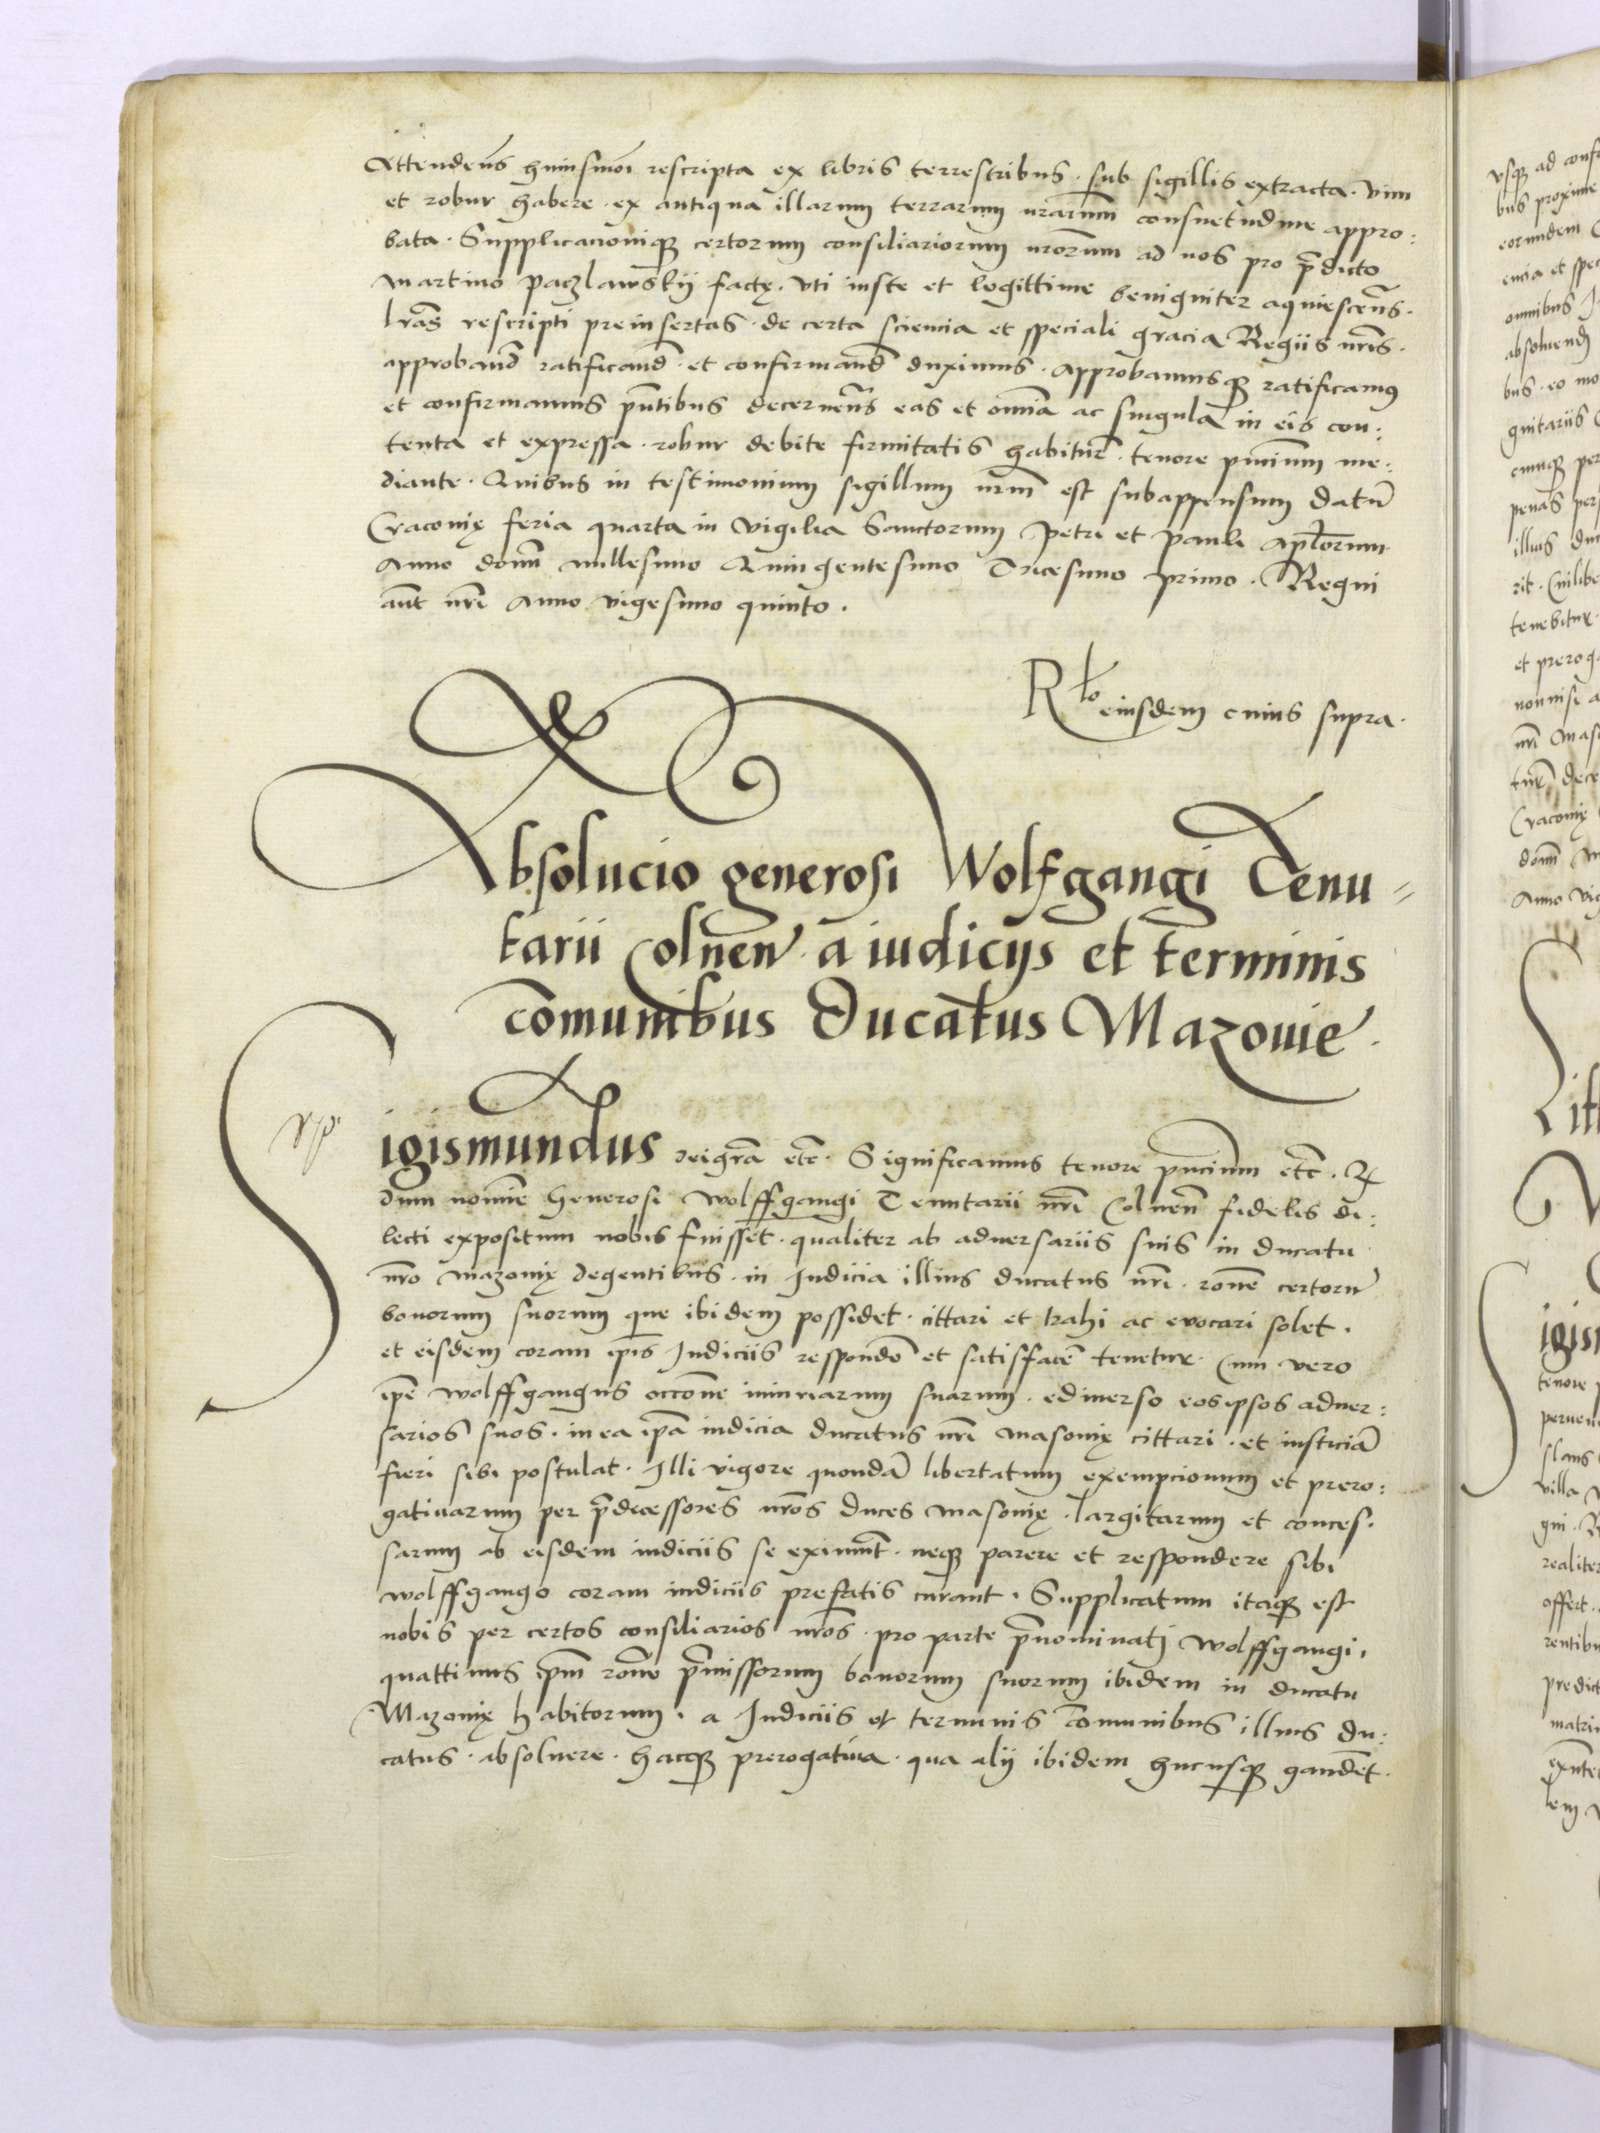 Attendeñs huiusmõi rescripta ex libris terrestribus · sub sigillis extracta · vim
et robur habere · ex antiqua illarum terrarum nrarum̃ consuetudine appro:
bata · Supplicationiqꝫ certorum consiliariorum nrorum̃ ad nos pro p̃dicto
Martino Paczlawskÿ factę · vti iuste et legittime benigniter aquiesceñs ·
lrãs rescripti preinsertas · de certa sciencia et speciali gracia Regiis nrĩs ·
approband̃ ratificand̃ · et confirmand̃ duximus · Approbamusqꝫ ratificamus
et confirmamus p̃ntibus decerneñs eas et om̃ia ac singula in eis con:
tenta et expressa · robur debite firmitatis habitur̃ · tenore p̃ncium̃ me:
diante · Quibus in testimonium sigillum nrm̃ est subappensum datũ
Cracovię feria quarta in vigilia Sanctorum Petri et Pauli Aplõrum
Anno dom̃ millesimo Quingentesimo Tricesimo primo · Regni
aũt nrĩ Anno vigesimo quinto ·
Rlo eiusdem cuius supra ·
Absolucio generosi Wolfgangi Tenu=
tarii Colnen̄ · a iudicÿs et terminis
com̃unibus Ducatus Mazouie ·
Sigismundus deigrã etc̃ · Significamus tenore p̃ncium̃ etc̃ · Q
dum nomine Generosi Wolffgangi Tenutarii nrĩ Colnen̄ fidelis di:
lecti expositum nobis fuisset · qualiter ab adversariis suis in ducatu
nrõ Mazovię degentibus · in Iudicia illius ducatus nrĩ · rõne certorũ
bonorum suorum que ibidem possidet · cittari et trahi ac evocari solet ·
et eisdem coram ip̃is Iudiciis respondẽ et satisfacẽ tenetur · Cum vero
ip̃e Wolffgangus occõne iniuriarum suarum · ediverso eosipsos adver:
sarios suos · in ea ip̃a iudicia ducatus nrĩ Masovię cittari · et iusticiã
fieri sibi postulat · Illi vigore quondã libertatum exempcionum et prero:
gativarum per p̃decessores nrõs duces Masovię · largitarum et conces:
sarum ab eisdem iudiciis se eximunt̃ · neqꝫ parere et respondere sibi
Wolffgango coram iudiciis prefatis curant · Supplicatum itaqꝫ est
nobis per certos consiliarios nrõs · pro parte p̃nominatj Wolffgangi ·
quattinus ip̃m rõne p̃missorum bonorum suorum ibidem in ducatu
Mazovię habitorum · a Iudiciis et terminis com̃unibus illius du:
catus · absolvere · hacqꝫ prerogativa · qua alÿ ibidem hucusqꝫ gaudẽt ·